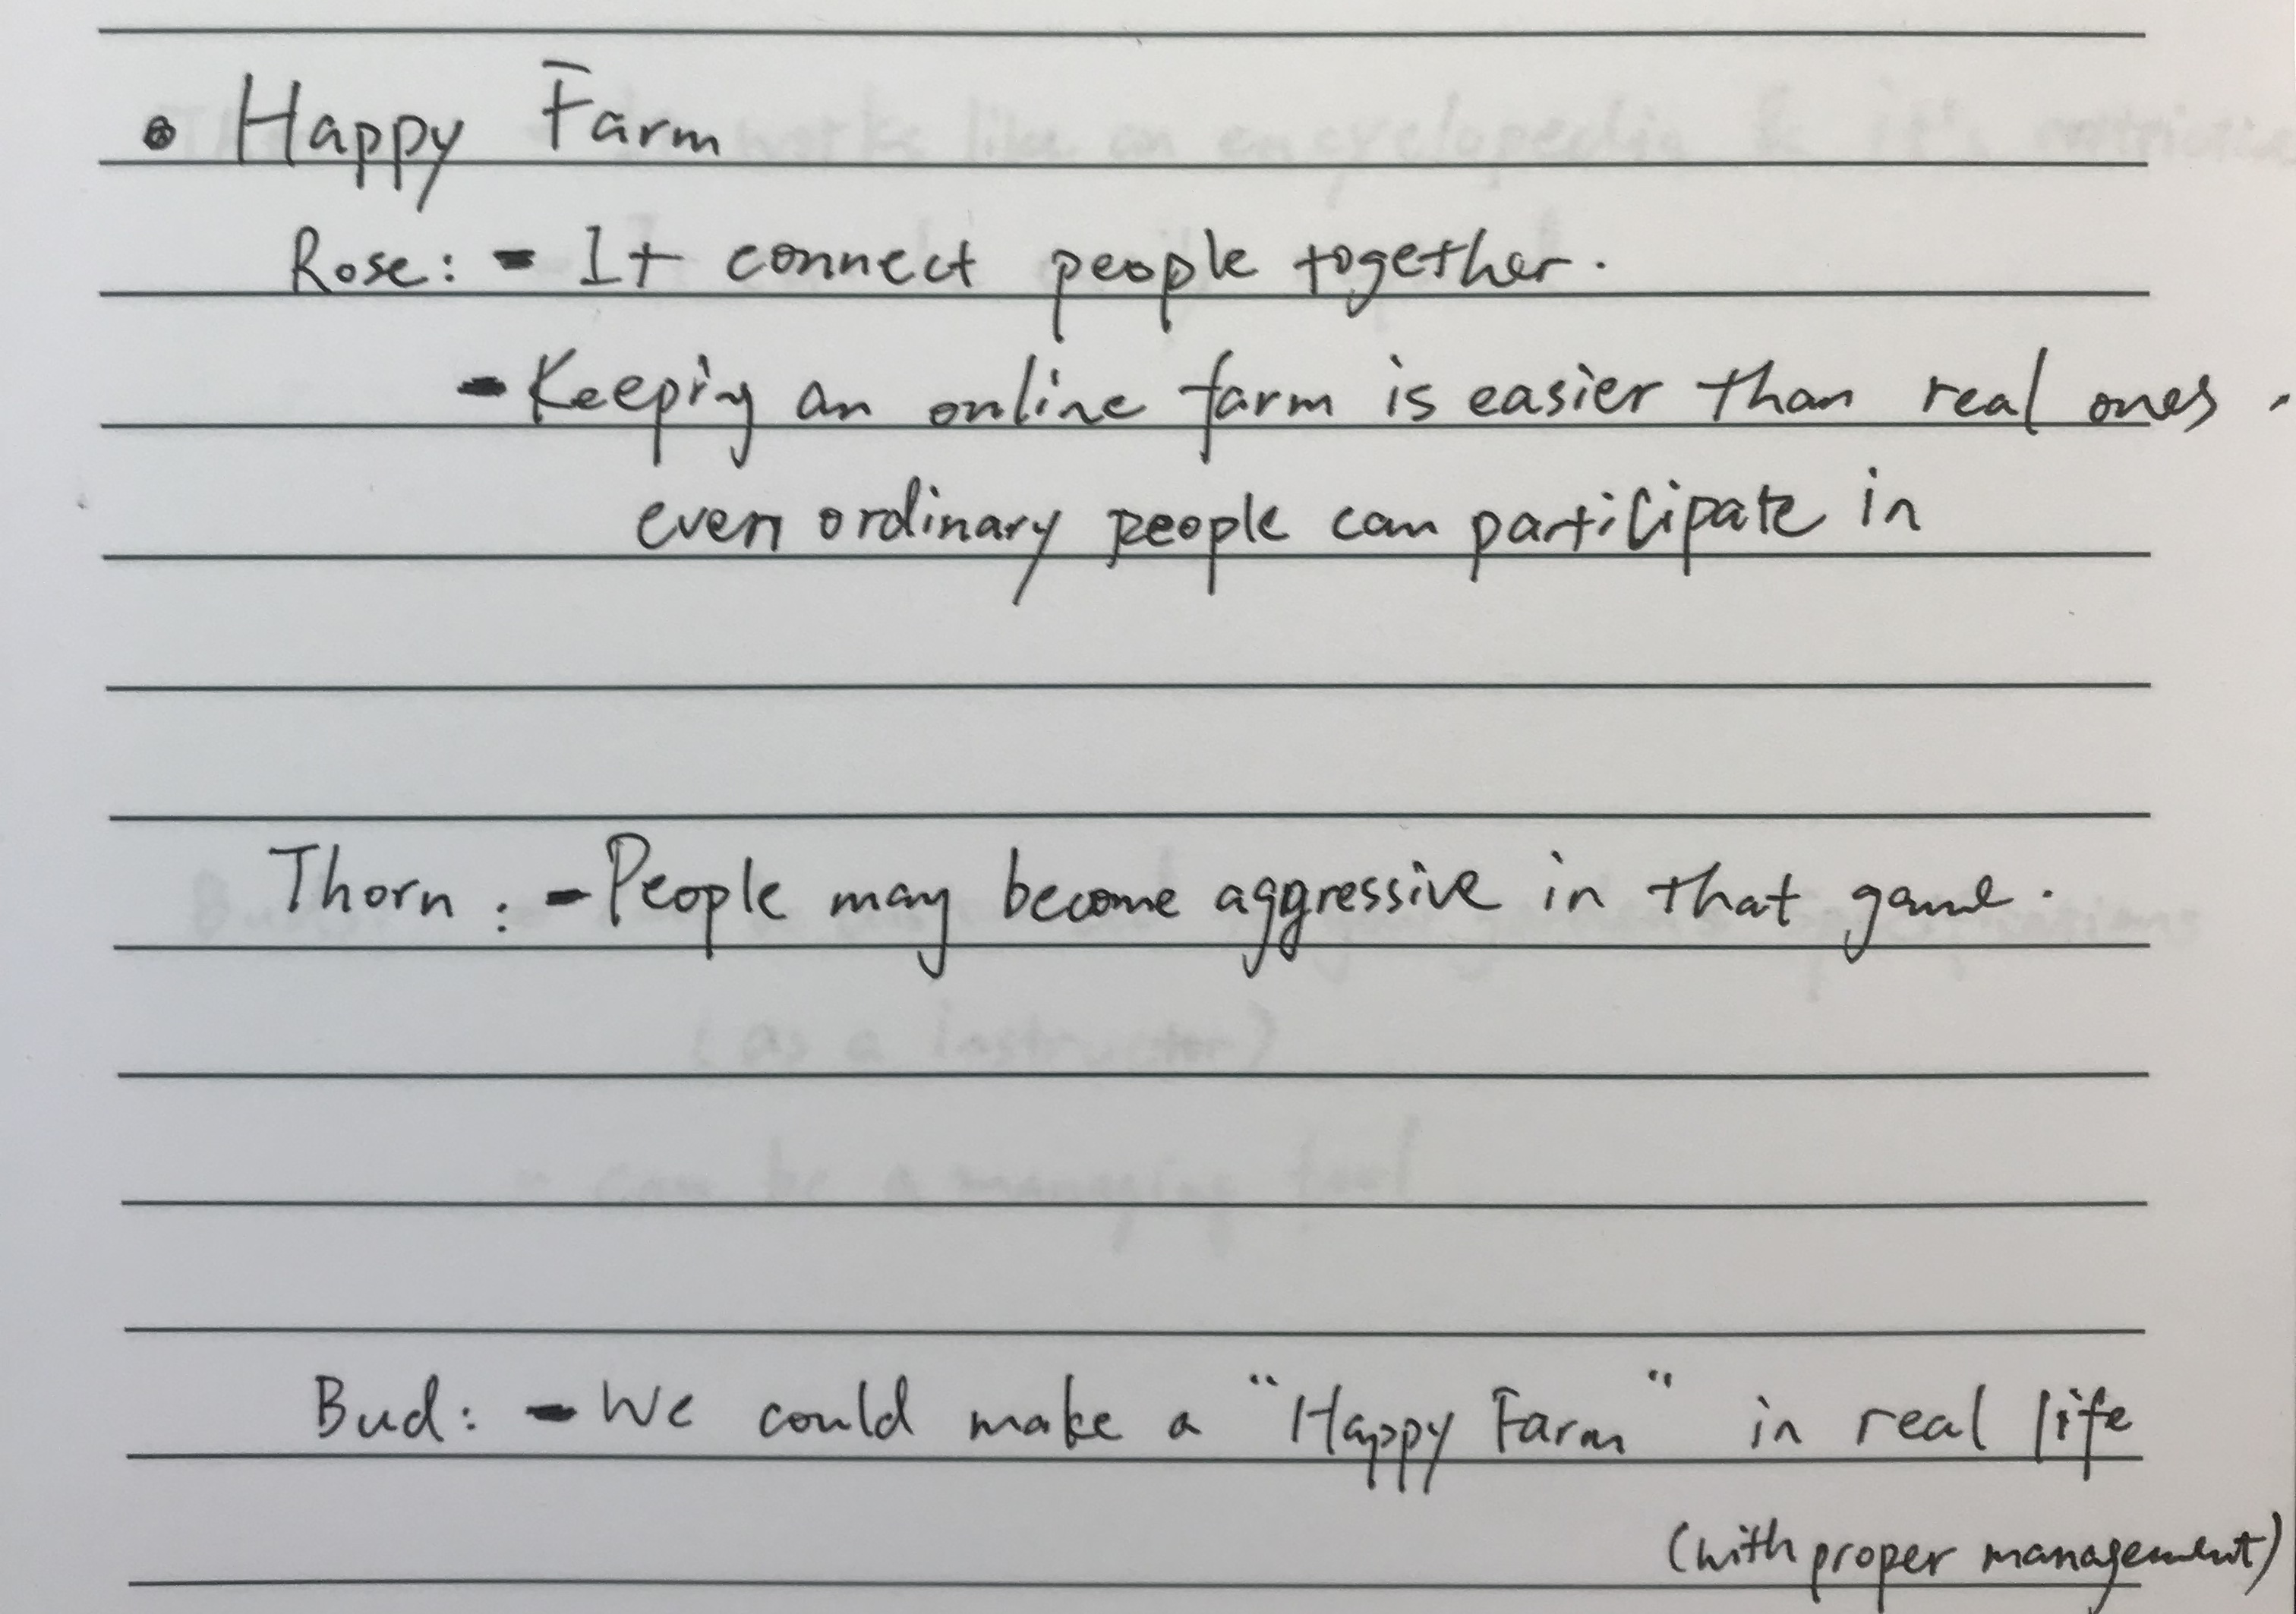 • Happy Farm
Rose: - It connect people together.
- Keeping an online farm is easier than real ones,
even ordinary people can participate in
Thorn: - People may become aggressive in that game.
Bud: - We could make a "Happy Farm" in real life
(with proper management)